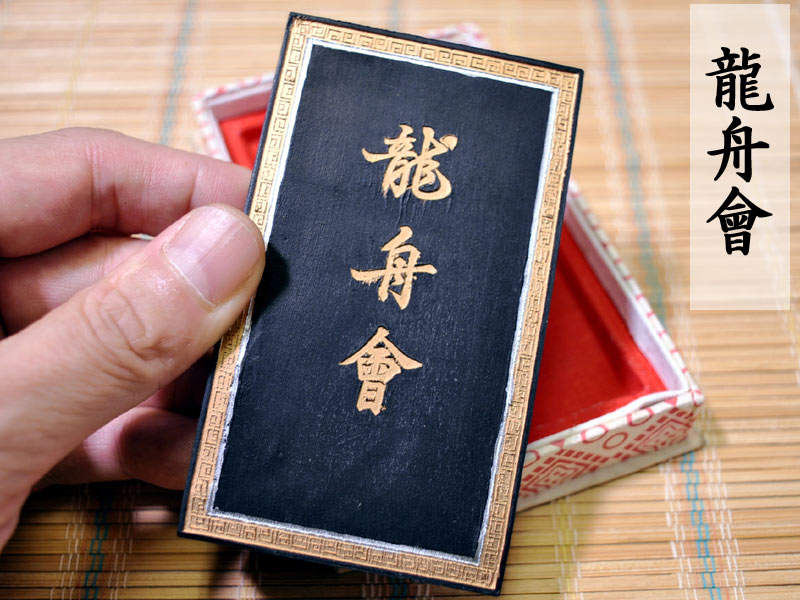 龍舟會
龍舟會